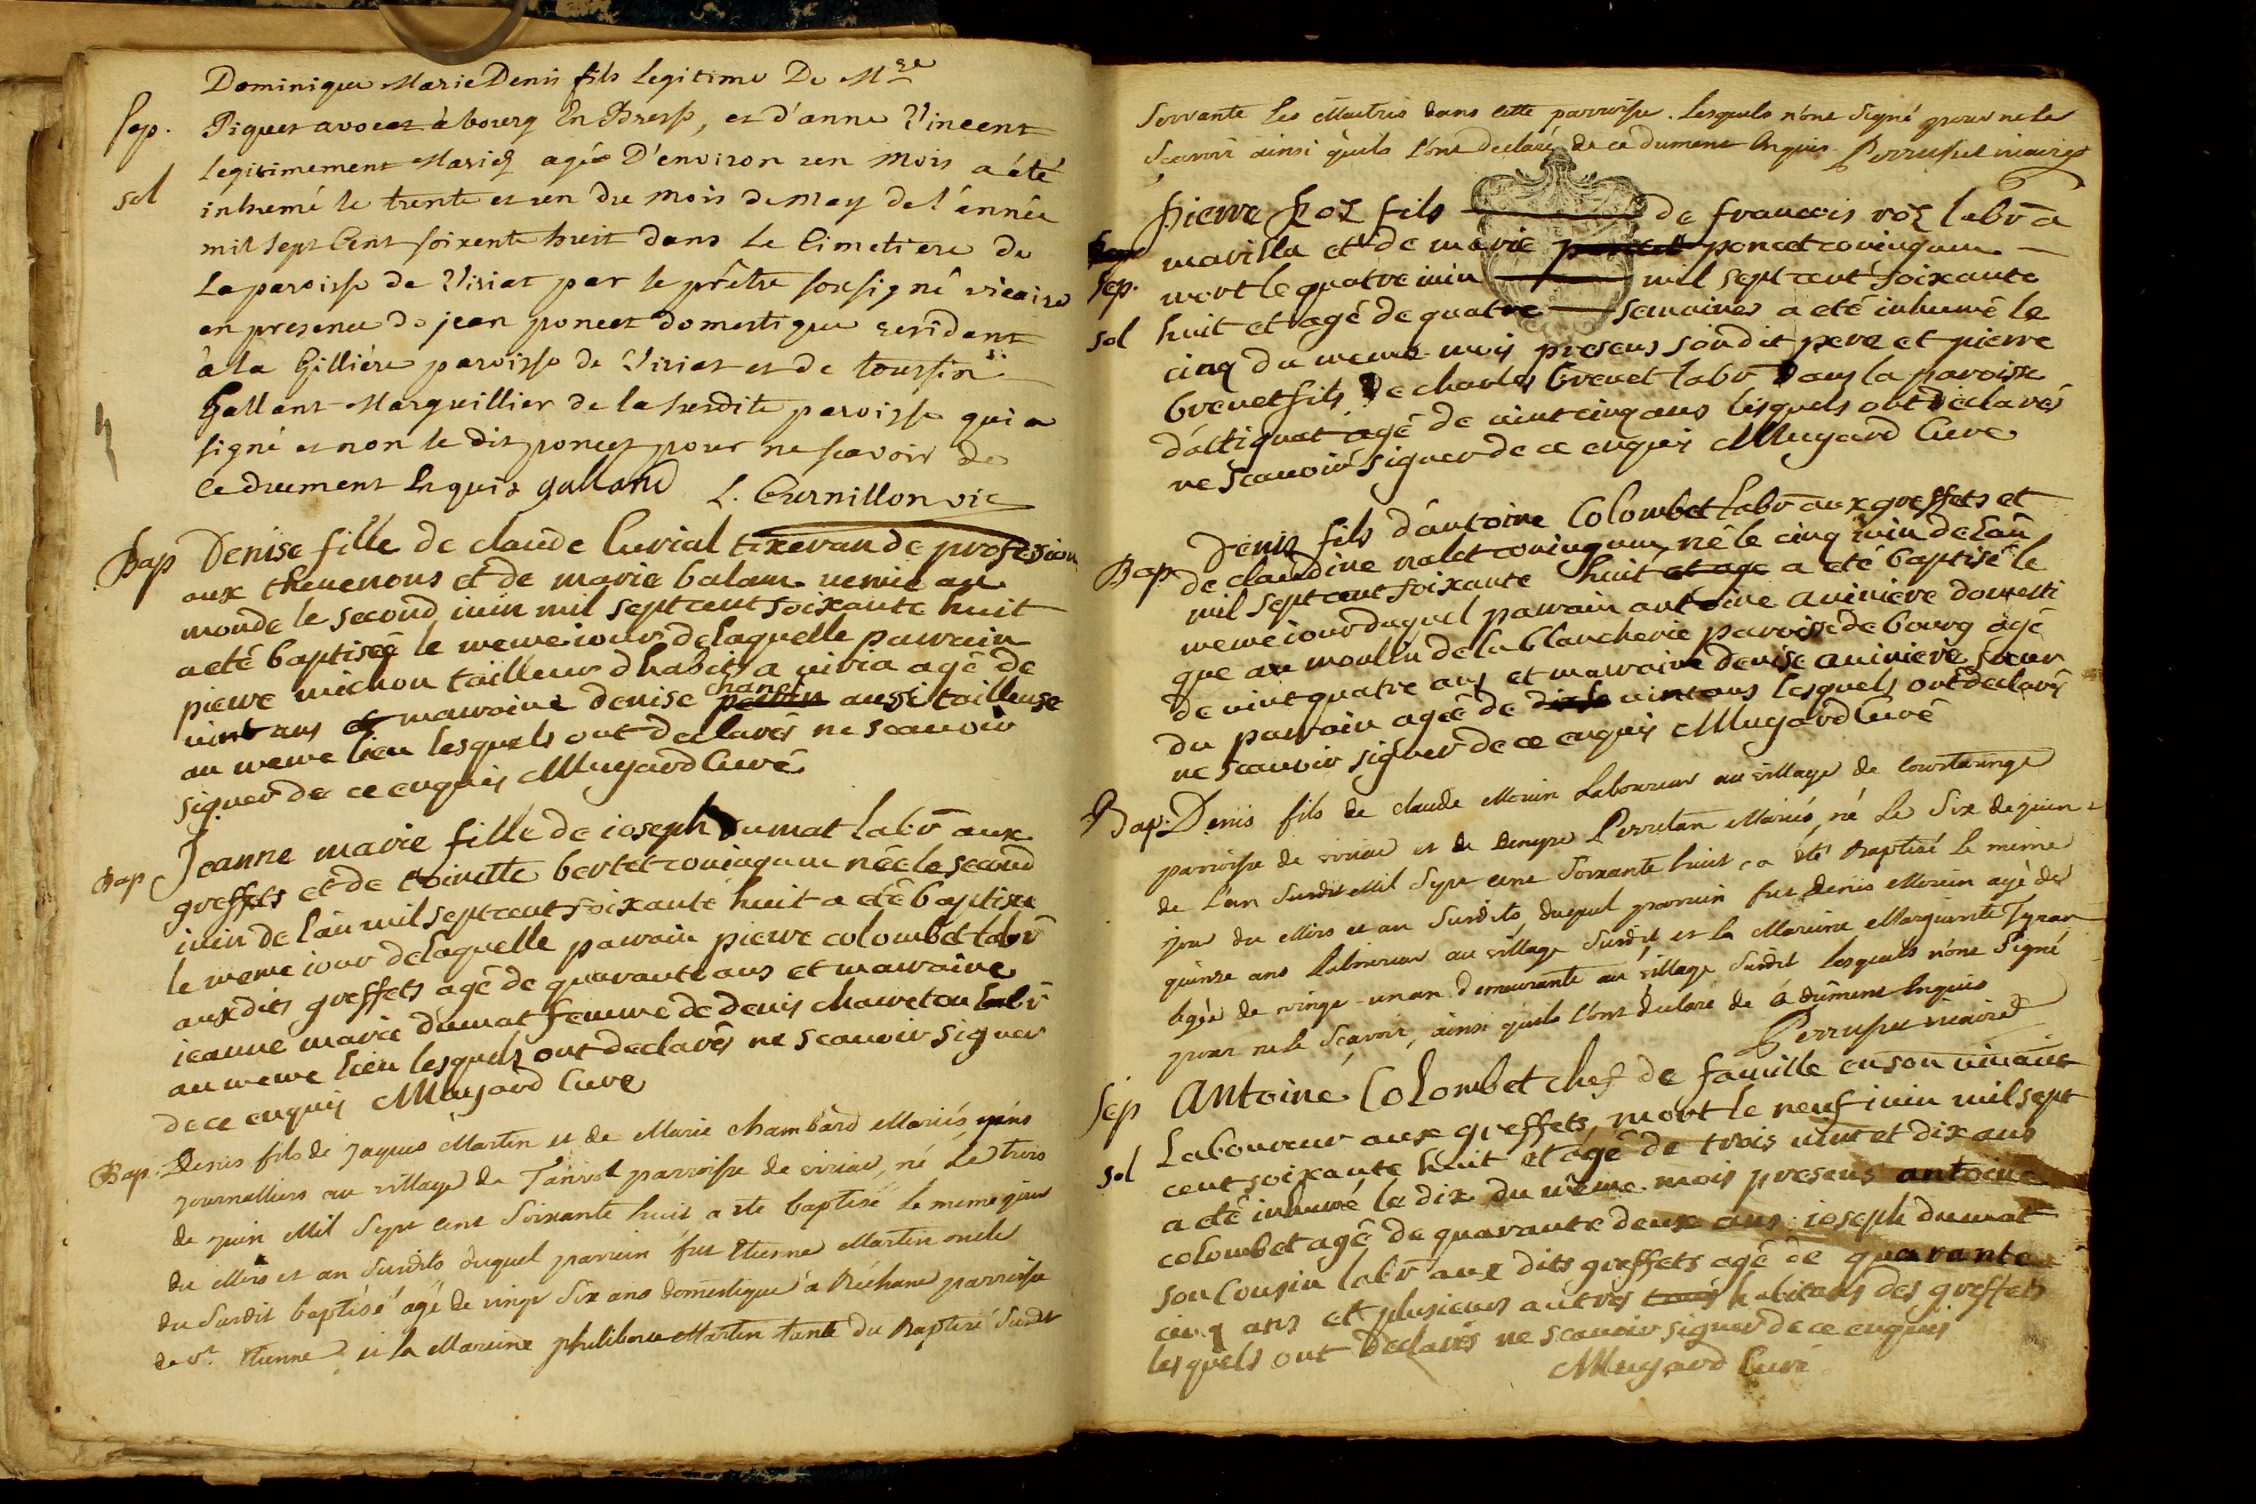 Dominique Marie Denis fils legitime De Mre
Sep. Piquet avocat à bourg En Bresse, et d'anne Vincent
legitimement Mariés agée D'environ un mois a été
sol inhumé le trente et un du mois de may de l'énnée
mil sept Cent soixente huit dans Le Cimetiere de
La paroisse de Viriat par le prêtre sousigné vicaire
en presence de jean poncet domestique residant
à la Gilliére paroisse de Viriat et de toussin
Gallant Marguillier de la susdite paroisse qui a
signé et non le dit poncet pour ne scavoir de
Ce duement Enquis galland L. Curnillon vic
Bap Denise fille de claude Curial tixeran de profession
aux thevenons et de marie balam venue au
monde le second iuin mil sept cent soixante huit
a eté baptiseé le meme iour de laquelle parrain
pierre michon tailleur d'habits a viria agé de
vint ans et marraine denise perrin chanel aussi tailleuse
au meme lieu lesquels ont declarés ne scauoir
signer de ce enquis MMugard Curé
Bap Jeanne marie fille de ioseph Dumat labr aux
greffets et de toinette bertet coniugum née le second
iuin de l'an mil sept cent soixante huit a eté baptisee
le meme iour de laquelle parrain pierre colombet labr
auxdits greffets agé de quarante ans et marraine
ieanne marie dumat femme de denis chawetou labr
au meme lieu lesquels ont declarés ne scauoir signer
de ce enquis MMugard Cure
Bap. Denis fils de Jaques Martin et de Marie chambard Mariés, gens
journalliers au village de Tanvol parroisse de viriac, né Le trois
de juin Mil Sept cent Soixante huit a été baptisé le meme jour
du Mois et an Susdits duquel parrain fut Etienne Martin oncle
du Susdit baptisé agé de vingt Six ans domestique à Réchane parroisse
de St. Etienne et la Mareine philiberte Martin tante du Baptisé Susdit
Servante Les Maitres dans cette parroisse. Lesquels n'ont Signé pour ne le
Scavoir ainsi qu'ils l'ont declaré de ce dument Enquis. Perruset vicaire
pierre Roz fils de francois roz labr a
marilla et de marie poncet poncet coniugum
Sep. mort le quatre iuin mil sept cent soixante
sol huit et agé de quatre semaines a eté inhumé le
cinq du meme mois presens son dit pere et pierre
brevet fils de charles brevet labr dans la paroisse
d'attignat agé de vint cinq ans lesquels ont declarés
ne scauoir signer de ce enquis MMugard Cure
Denis fils d'antoine Colombet labr aux greffets et
Bap de claudine nalet coniugum, né le cinq iuin de l'an
mil sept cent soixante huit et age a eté baptisé le
meme iour duquel parrain antoine aviniere domesti
que au moulin de la blancherie paroisse de bourg agé
de vint quatre ans et marraine denise aviniere soeur
du parrain ageé de vint ans lesquels ont declarés
ne scauoir signer de ce enquis MMugard Curé
Bap. Denis fils de claude Morin Laboureur au village de Courtaringe
parroisse de viriac et de Denyse Perretan Mariés, né Le Six de juin
de L'an Susdit Mil Sept cent Soixante huit, a été Baptisé Le meme
jour du Mois et an Susdits, duquel parrain fut Denis Morin agé de
quinze ans Laboureur au village Susdit et la Mareine Marguerite Tyran
agée de vingt-un an demeurante au village Susdit Lesquels n'ont Signé
pour ne le Sçavoir, ainsi qu'ils l'ont declaré de ce dûment Enquis
Perruset vicaire
Sep Antoine Colombet chef de famille en son vivant
Laboureur aux greffets, mort le neuf iuin mil sept
sol cent soixante huit et agé de trois vint et dix ans
a eté inhumé le dix du meme mois presens antoine
colombet agé de quarante deux ans ioseph dumat
son Cousin labr aux dits greffets agé de quarante
cinq ans et plusieurs autres habitans des greffets
lesquels ont declarés ne scauoir signer de ce enquis
MMugard Curé